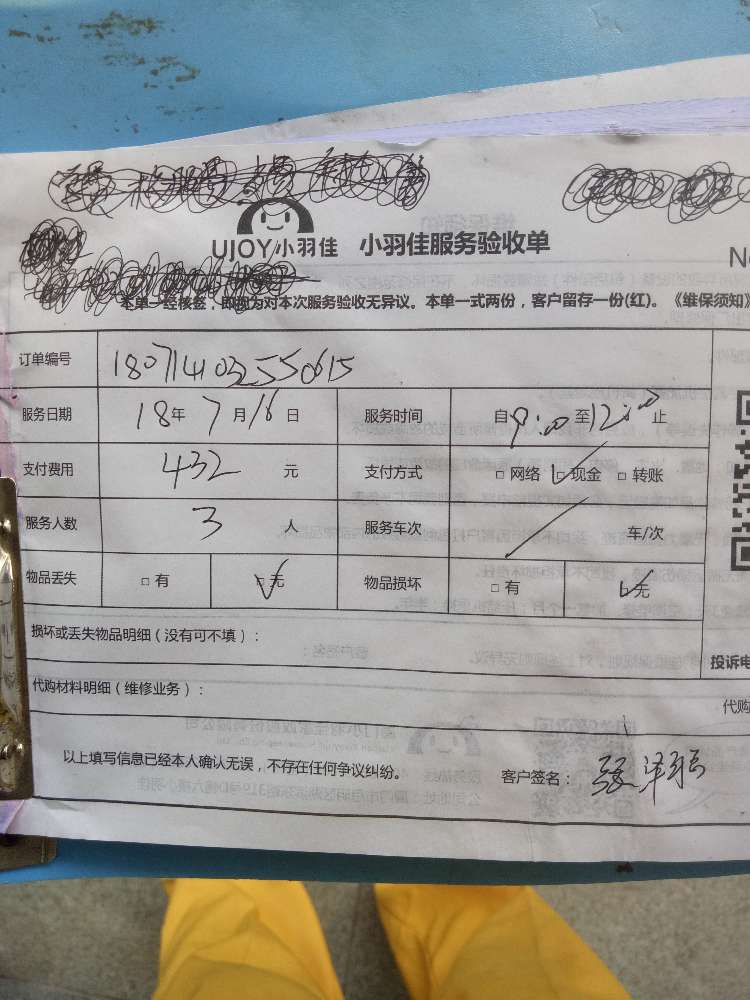 UJOY小羽佳 小羽佳服务验收单
本单一经核签，即视为对本次服务验收无异议。本单一式两份，客户留存一份(红)。《维保须知》
订单编号 1807141032550615
服务日期 18年 7月16日 服务时间 自9:00至12:00止
支付费用 432 元 支付方式 □网络 ☑现金 □转账
服务人数 3 人 服务车次 / 车/次
物品丢失 □有 ☑无 物品损坏 □有 ☑无
损坏或丢失物品明细（没有可不填）：
投诉电
代购材料明细（维修业务）：
代购
以上填写信息已经本人确认无误，不存在任何争议纠纷。 客户签名：